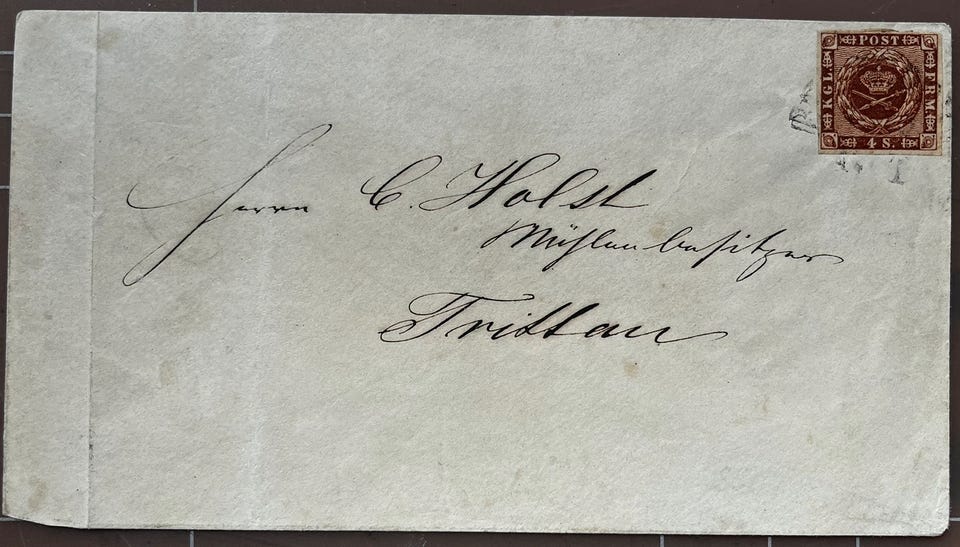 POST
KGL
FRM
4 S.
Herrn C. Holst
Mühlenbesitzer
Trittau